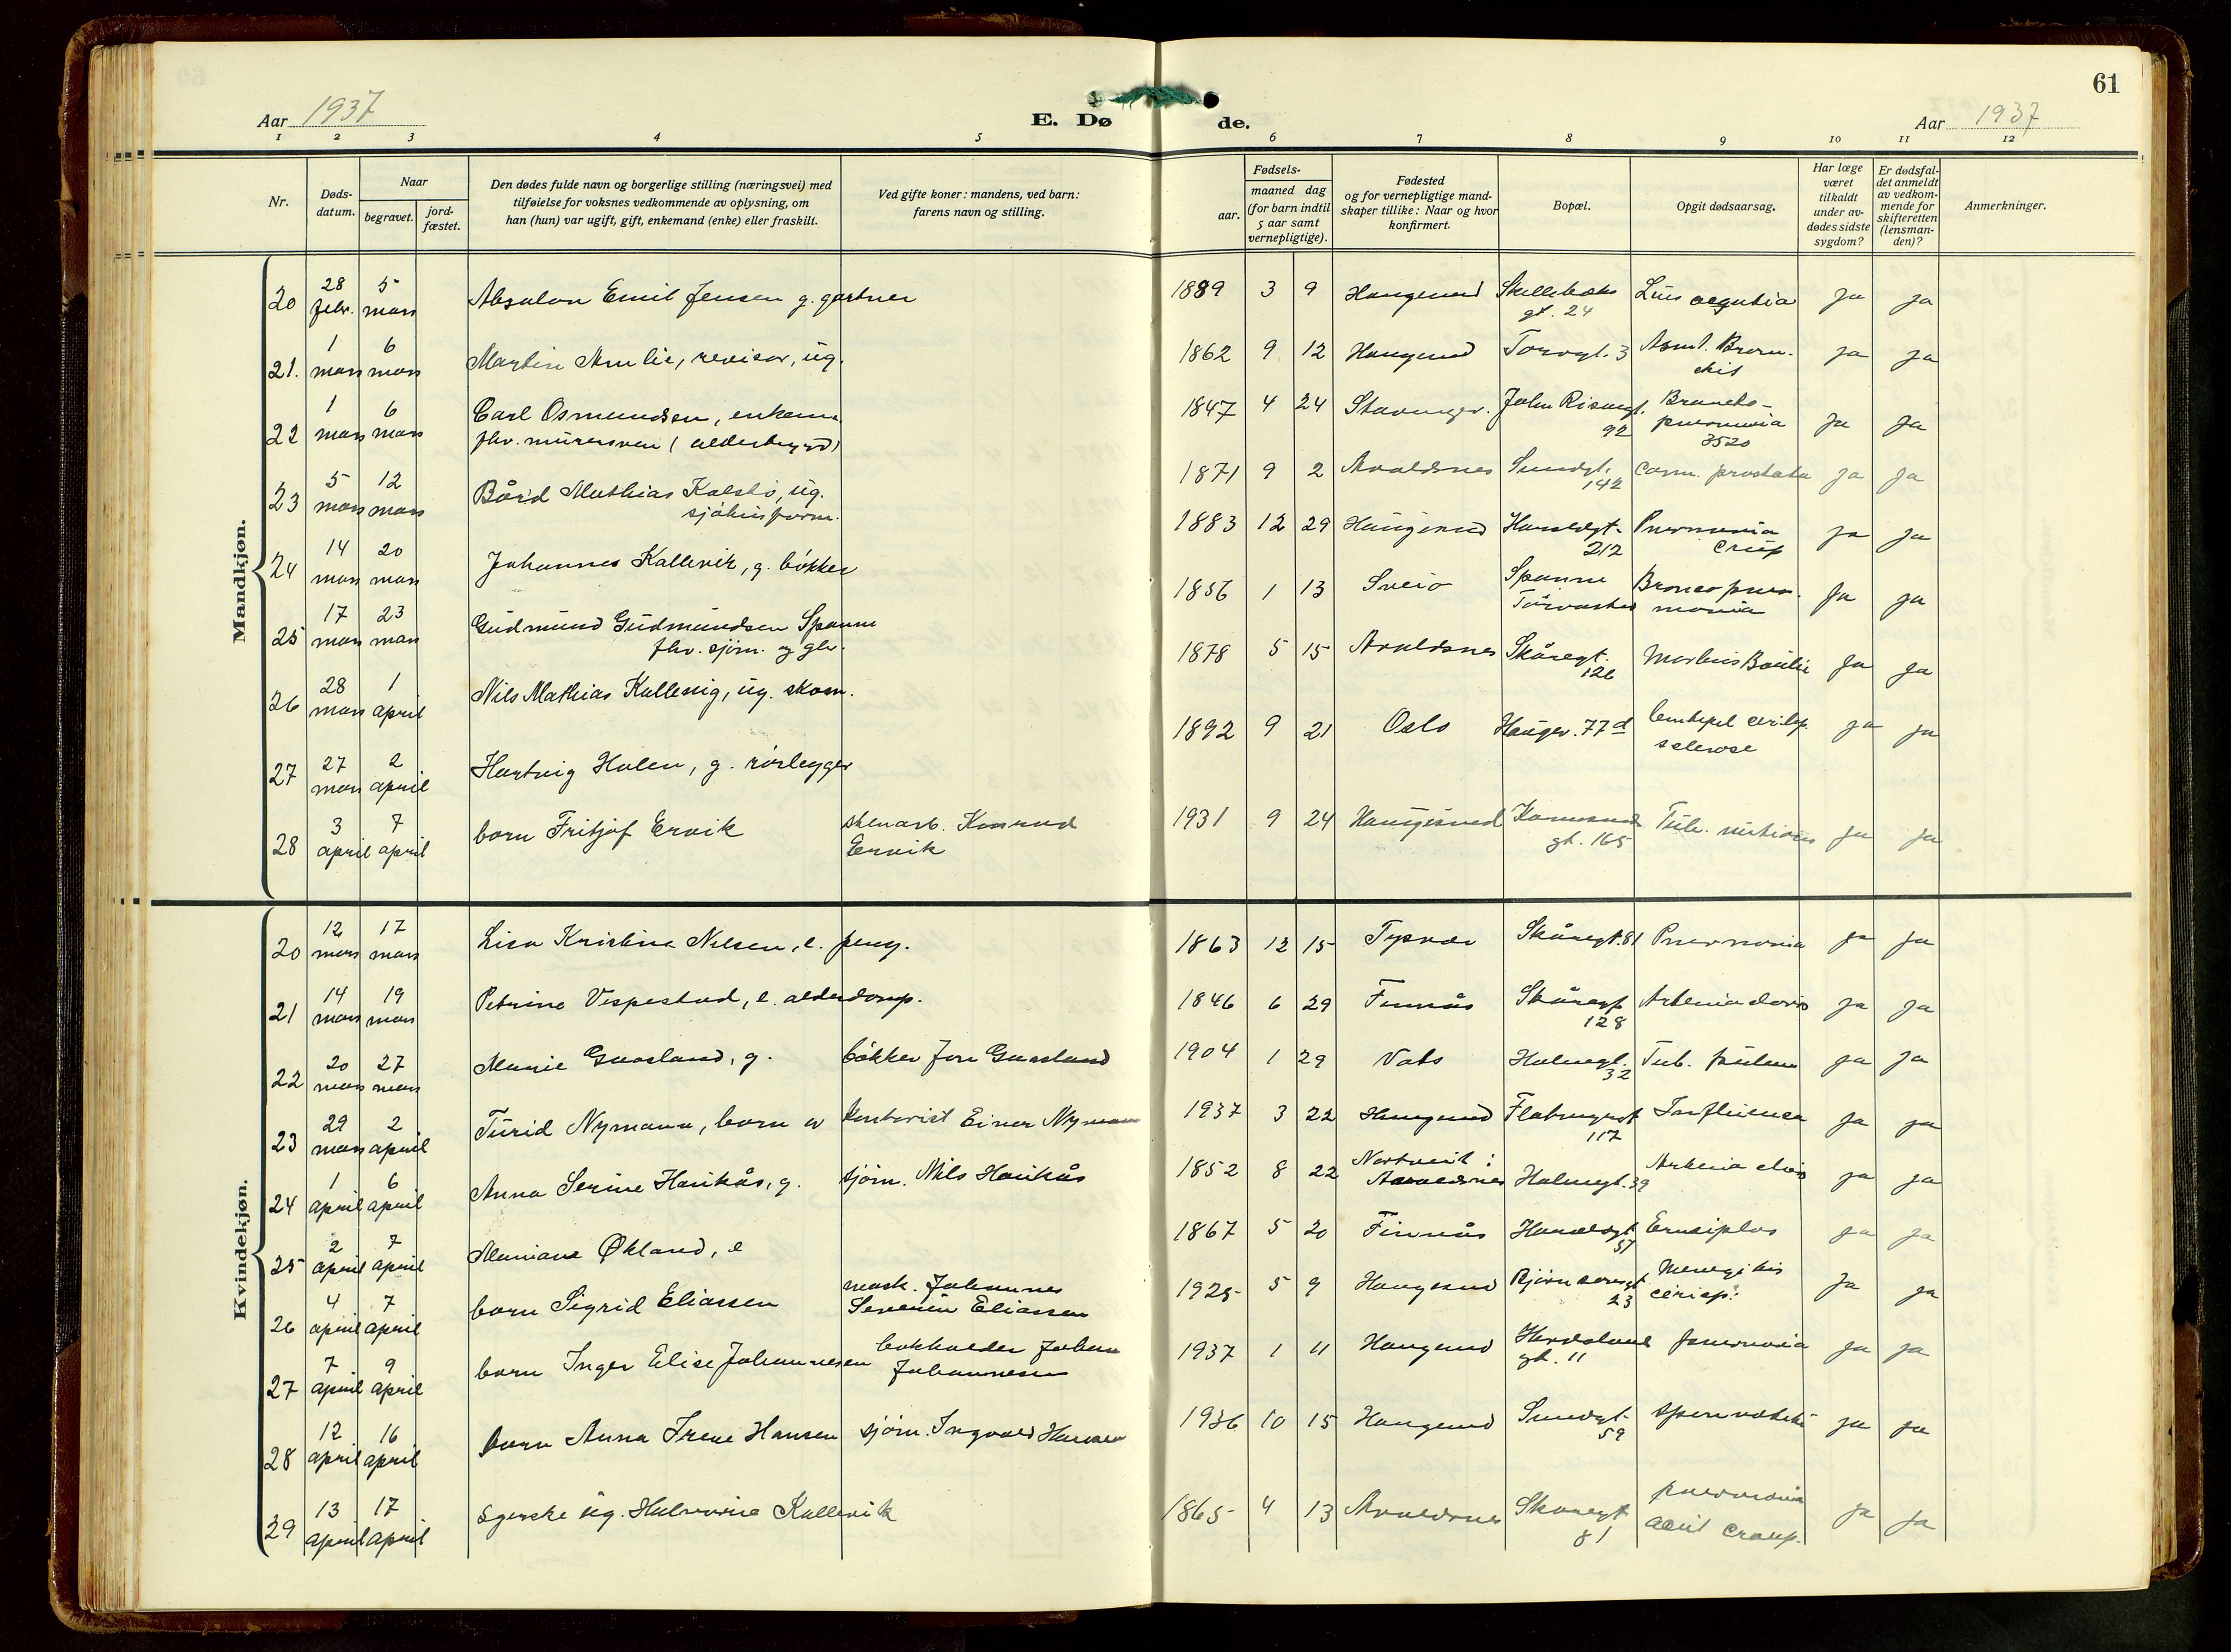 61
Aar 1937 E. Dø de. Aar 1937
1 2 3 4 5 6 7 8 9 10 11 12
Nr. Døds-datum. Naar begravet. jord-fæstet. Den dødes fulde navn og borgerlige stilling (næringsvei) med tilføielse for voksnes vedkommende av oplysning, om han (hun) var ugift, gift, enkemand (enke) eller fraskilt. Ved gifte koner: mandens, ved barn: farens navn og stilling. Fødsels- aar. maaned dag (for barn indtil 5 aar samt vernepligtige). Fødested og for vernepligtige mand-skaper tillike: Naar og hvor konfirmert. Bopæl. Opgit dødsaarsag. Har læge været tilkaldt under av-dødes sidste sygdom? Er dødsfal-det anmeldt av vedkom-mende for skifteretten (lensman-den)? Anmerkninger.
Mandkjøn.
20 28 febr. 5 mars Absalon Emil Jensen g. gartner 1889 3 9 Haugesund gt. 24 Ja Ja
21. 1 mars 6 mars Martin Amlie, revisor, ug. 1862 9 12 Haugesund Torvgt. 3 Ja Ja
22 1 mars 6 mars Carl Osmundsen, enkem. fhv. murersven (alderstrygd) 1847 4 24 Stavanger. 92 Broncho-pneumonia 3520 Ja Ja
23 5 mars 12 mars Bård Mathias Kolstø, ug. 1871 9 2 Avaldsnes Sundgt. 142 prostata Ja Ja
24 14 mars 20 mars Johannes Kallevik, g. bøkker 1883 12 29 Haugesund Haraldsgt. 212 Pneumonia Crup Ja Ja
25 17 mars 23 mars Gudmund Gudmundsen Spanne fhv. sjøm. og gbr. 1856 1 13 Sveio Spanne Torvastad Broncopneumonia Ja Ja
26 28 mars 1 april Nils Mathias Kallevig, ug. skom. 1878 5 15 Avaldsnes Skåregt. 126 Ja Ja
27 27 mars 2 april Hartvig Holen, g. rørlegger 1892 9 21 Oslo Hauger. 77d sclerose Ja Ja
28 3 april 7 april barn Fritjof Ervik stenarb. Konrad Ervik 1931 9 24 Haugesund Karmsund gt. 165 Tub. Ja Ja
Kvindekjøn.
20 12 mars 17 mars Lisa Kristine Nilsen, e. peng. 1863 12 15 Tysvær Skåregt. 81 Pneumonia Ja Ja
21 14 mars 19 mars Petrine Vespestad, e. aldersdomsp. 1846 6 29 Finnås Skåregt 128 Ja Ja
22 20 mars 27 mars Marie Gaasland, g. bøkker Jon Gaasland 1904 1 29 Vats Holmegt. 32 Tub. pulm Ja Ja
23 29 mars 2 april Turid Nymann, barn av kontorist Einar Nymann 1937 3 22 Haugesund 117 Influensa Ja Ja
24 1 april 6 april Anna Serine Haukås, g. sjøm. Nils Haukås 1852 8 22 Avaldsnes Holmegt. 39 Ja Ja
25 2 april 7 april Mariane Økland, e 1867 5 20 Finnås Haraldsgt 57 Ja Ja
26 4 april 7 april barn Sigrid Eliassen mask. Johannes Severin Eliassen 1925 5 9 Haugesund Bjørnsonsgt 23 Ja Ja
27 7 april 9 april barn Inger Elise Johannesen bokholder Johan Johannesen 1937 1 11 Haugesund gt. 11 pneumonia Ja Ja
28 12 april 16 april barn Anna Irene Hansen sjøm. Ingvald Hansen 1936 10 15 Haugesund Sundgt. 59 Ja Ja
29 13 april 17 april ug. Kallevik 1865 4 13 Avaldsnes Skåregt 81 pneumonia acut croup. Ja Ja